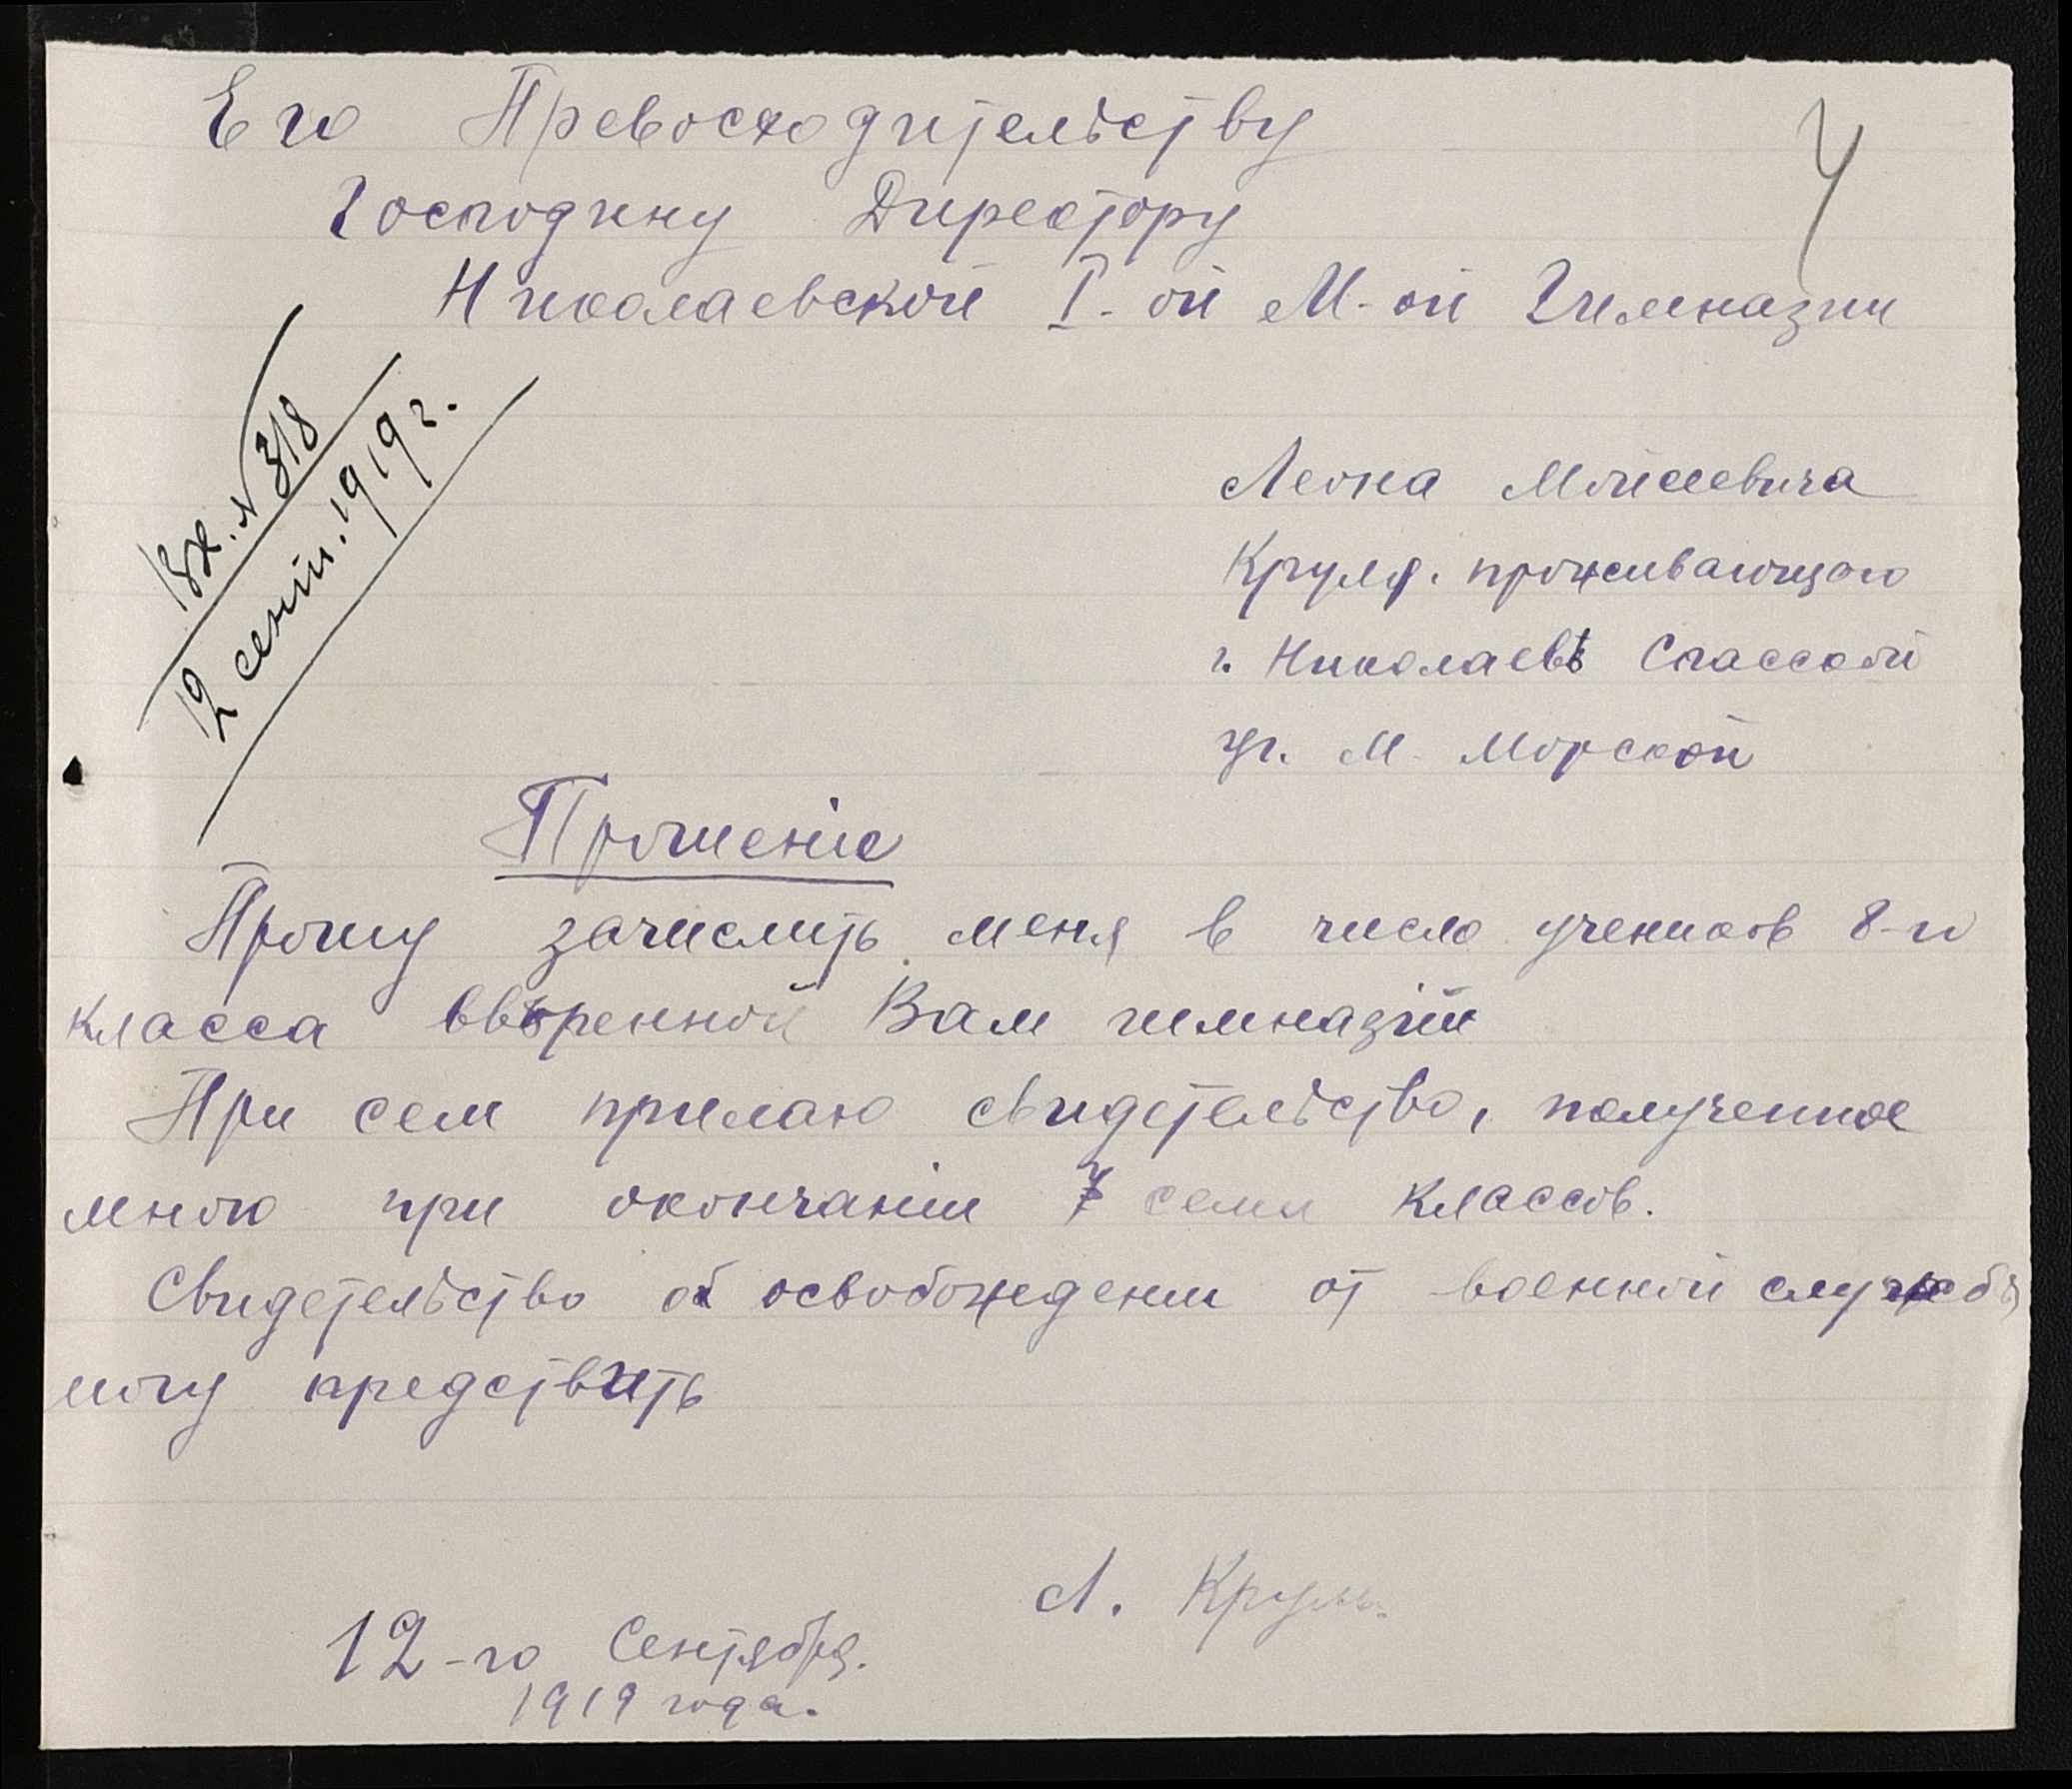 Его Превосходительству
Господину Директору
Николаевской I-ой М-ой Гимназии
4
Вх. № 318
12 сент. 1919 г.
Леона Мойсеевича
Круля. проживающого
г. Николаевѣ Спасской
уг. М. Морской
Прошеніе
Прошу зачислить меня в число учеников 8-го
класса ввѣренной Вам гимназіи
При сем прилаю свидетельство, полученное
мною при окончаніи 7 семи классов.
Свидетельство об освобождении от военной службы
могу предствить
Л. Круль.
12-го Сентября.
1919 года.